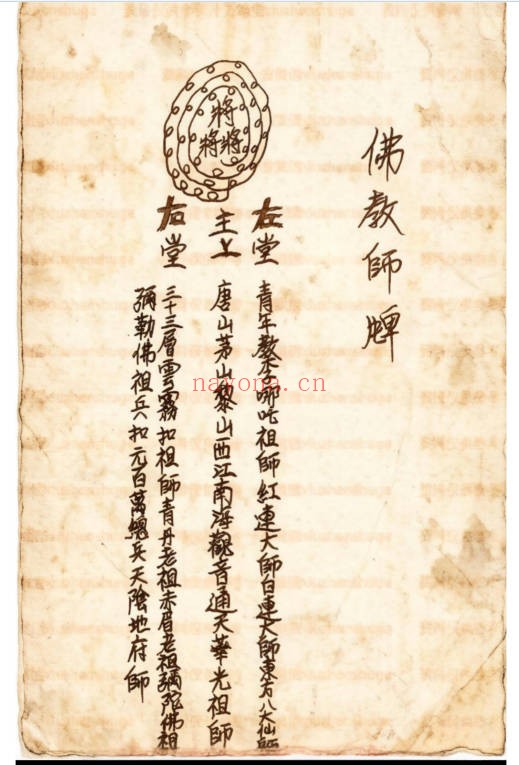 佛教師牌
將
將將
左堂
青年教李哪吒祖師紅連大師白連大師東方八大仙
主上
唐山茅山黎山西江南海觀音通天華光祖師
右堂
三十三層雲霧扣祖師青丹老祖赤眉老祖彌陀佛祖
彌勒佛祖兵扣元百萬總兵天陰地府師
nayona.cn